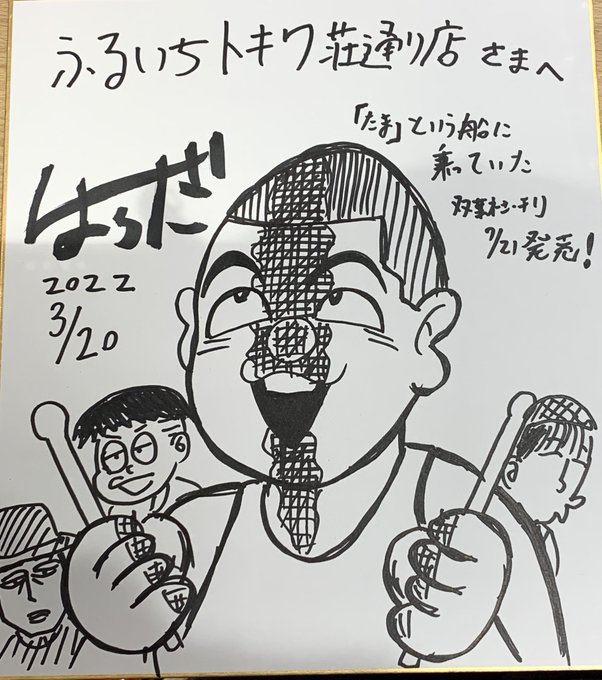 ふるいちトキワ荘通り店 さまへ
「たま」という船に
乗っていた
双葉社ヨリ
7/21発売!
はらだ
2022
3/20